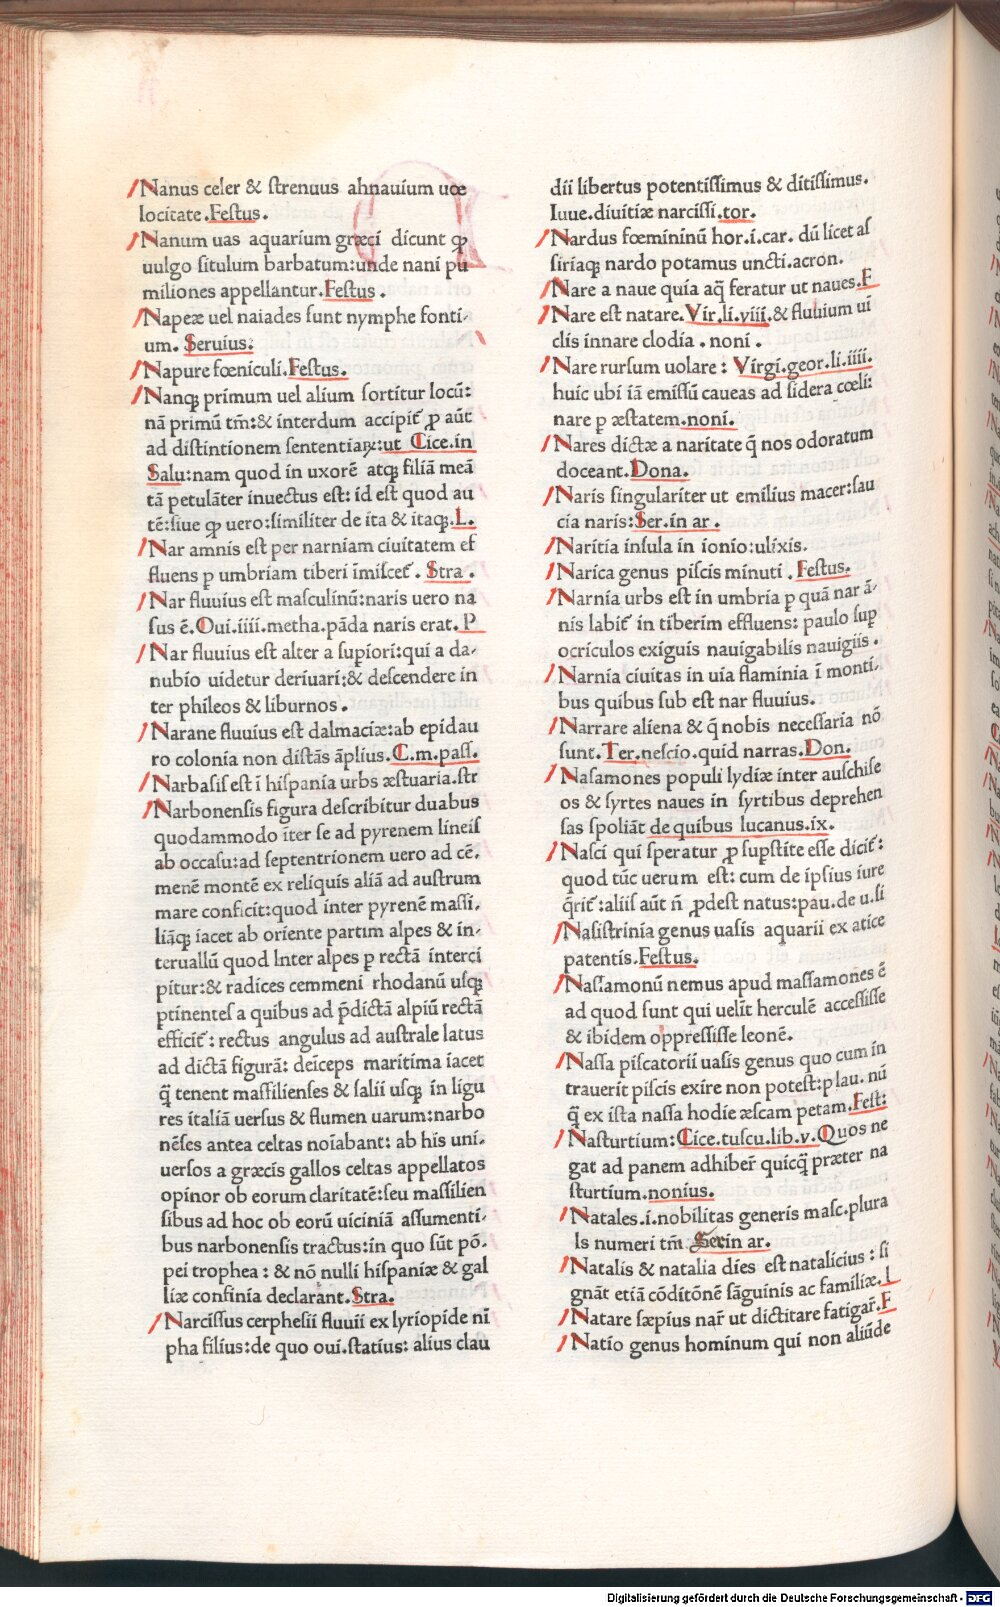 Nanus celer & ſtrenuus ahnauium uoe
locitate.Feſtus.
Nanum uas aquarium græci dicunt ꝙ
uulgo ſitulum barbatum:unde nani pu
miliones appellantur.Feſtus.
Napeæ uel naiades ſunt nymphe fonti⸗
um. Seruius:
Napure fœniculi.Feſtus.
Nanqꝫ primum uel alium ſortitur locū:
nā primū tm̄:& interdum accipit̄ ꝓ aūt
ad diſtintionem ſententiaꝝ:ut Cice.in
Salu:nam quod in uxorē atqꝫ filiā meā
tā petulāter inuectus eſt: id eſt quod au
tē:ſiue ꝙ uero:ſimiliter de ita & itaqꝫ.L.
Nar amnis eſt per narniam ciuitatem ef
fluens ꝑ umbriam tiberi īmiſcet̄. Stra.
Nar fluuius eſt maſculinū:naris uero na
ſus ē.Oui.iiii.metha.pāda naris erat.P
Nar fluuius eſt alter a ſupiori:qui a da⸗
nubio uidetur deriuari:& deſcendere in
ter phileos & liburnos.
Narane fluuius eſt dalmaciæ:ab epidau
ro colonia non diſtās āplius.C.m.paſſ.
Narbaſiſ eſt ī hiſpania urbs æſtuaria.ſtr
Narbonenſis figura deſcribitur duabus
quodammodo īter ſe ad pyrenem lineiſ
ab occaſu:ad ſeptentrionem uero ad cē.
menē montē ex reliquis aliā ad auſtrum
mare conficit:quod inter pyrenē maſſi.
liāqꝫ iacet ab oriente partim alpes & in⸗
teruallū quod Inter alpes ꝑ rectā interci
pitur:& radices cemmeni rhodanū uſqꝫ
ꝑtinenteſ a quibus ad p̄dictā alpiū rectā
efficit̄: rectus angulus ad auſtrale latus
ad dictā figurā: deīceps maritima iacet
q̄ tenent maſſilienſes & ſalii uſqꝫ in ligu
res italiā uerſus & flumen uarum:narbo
nēſes antea celtas noīabant: ab his uni⸗
uerſos a græcis gallos celtas appellatos
opinor ob eorum claritatē:ſeu maſſilien
ſibus ad hoc ob eorū uiciniā aſſumenti⸗
bus narbonenſis tractus:in quo ſūt pō.
pei trophea: & nō nulli hiſpaniæ & gal
liæ confinia declarant.Stra.
Narciſſus cerpheſii fluuii ex lyriopide nī
pha filius:de quo oui.ſtatius: alius clau
dii libertus potentiſſimus & ditiſſimus.
Iuue.diuitiæ narciſſi.tor.
Nardus fœmininū hor.i.car. dū licet aſ
ſiriaqꝫ nardo potamus uncti.acron.
Nare a naue quia aq̄ feratur ut naues.F
Nare eſt natare.Vir.li.viii.& fluuium ui
clis innare clodia. noni.
Nare rurſum uolare: Virgi.geor.li.iiii.
huic ubi iā emiſſū caueas ad ſidera cœli:
nare ꝑ æſtatem.noni.
Nares dictæ a naritate q̄ nos odoratum
doceant.Dona.
Naris ſingulariter ut emilius macer:ſau
cia naris:Ser.in ar.
Naritia inſula in ionio:ulixis.
Narica genus piſcis minuti.Feſtus.
Narnia urbs eſt in umbria ꝑ quā nar ā⸗
nis labit̄ in tiberim effluens: paulo ſup
ocriculos exiguis nauigabilis nauigiis.
Narnia ciuitas in uia flaminia ī monti⸗
bus quibus ſub eſt nar fluuius.
Narrare aliena & q̄ nobis neceſſaria nō
ſunt.Ter.neſcio.quid narras.Don.
Naſamones populi lydiæ inter auſchiſe
os & ſyrtes naues in ſyrtibus deprehen
ſas ſpoliāt de quibus lucanus.ix.
Naſci qui ſperatur ꝓ ſupſtite eſſe dicit̄:
quod tūc uerum eſt: cum de ipſius iure
q̄rit̄:aliiſ aūt n̄ ꝓdeſt natus:pau.de u.ſi
Naſiſtrinia genus uaſis aquarii ex atice
patentis.Feſtus.
Naſſamonū nemus apud maſſamones ē
ad quod ſunt qui uelīt herculē acceſſiſſe
& ibidem oppreſſiſſe leonē.
Naſſa piſcatorii uaſis genus quo cum in
trauerit piſcis exire non poteſt:plau. nū
q̄ ex iſta naſſa hodie æſcam petam.Feſt:
Naſturtium:Cice.tuſcu.lib.v.Quos ne
gat ad panem adhiber̄ quicq̄ præter na
ſturtium.nonius.
Natales.i.nobilitas generis maſc.plura
ls numeri tm̄ Serin ar.
Natalis & natalia dies eſt natalicius: ſi
gnāt etiā cōditōnē ſāguinis ac familiæ.L
Natare ſæpius nar̄ ut dictitare fatigar̄.F
Natio genus hominum qui non aliūde
Digitalisierung gefördert durch die Deutsche Forschungsgemeinschaft - DFG